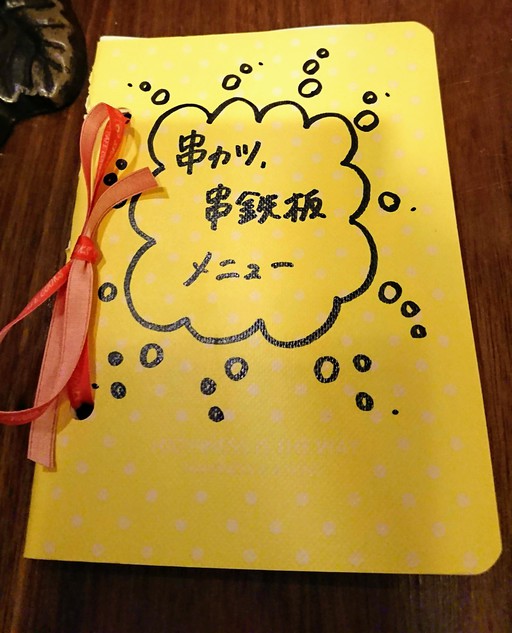 串カツ、
串鉄板
メニュー